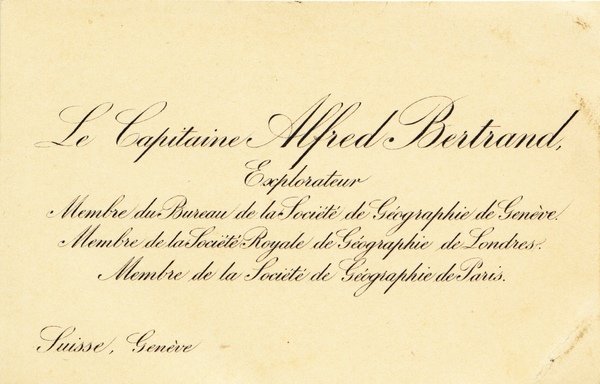 Le Capitaine Alfred Bertrand,
Explorateur
Membre du Bureau de la Société de Géographie de Genève.
Membre de la Société Royale de Géographie de Londres.
Membre de la Société de Géographie de Paris.
Suisse, Genève